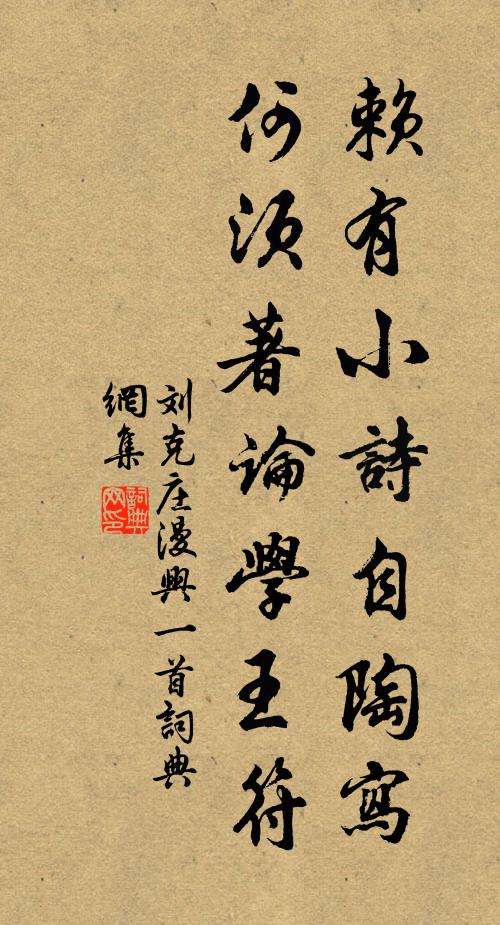 賴有小詩自陶寫
何須著論學王符
刘克庄漫興一首詞典
網集
詞典网印